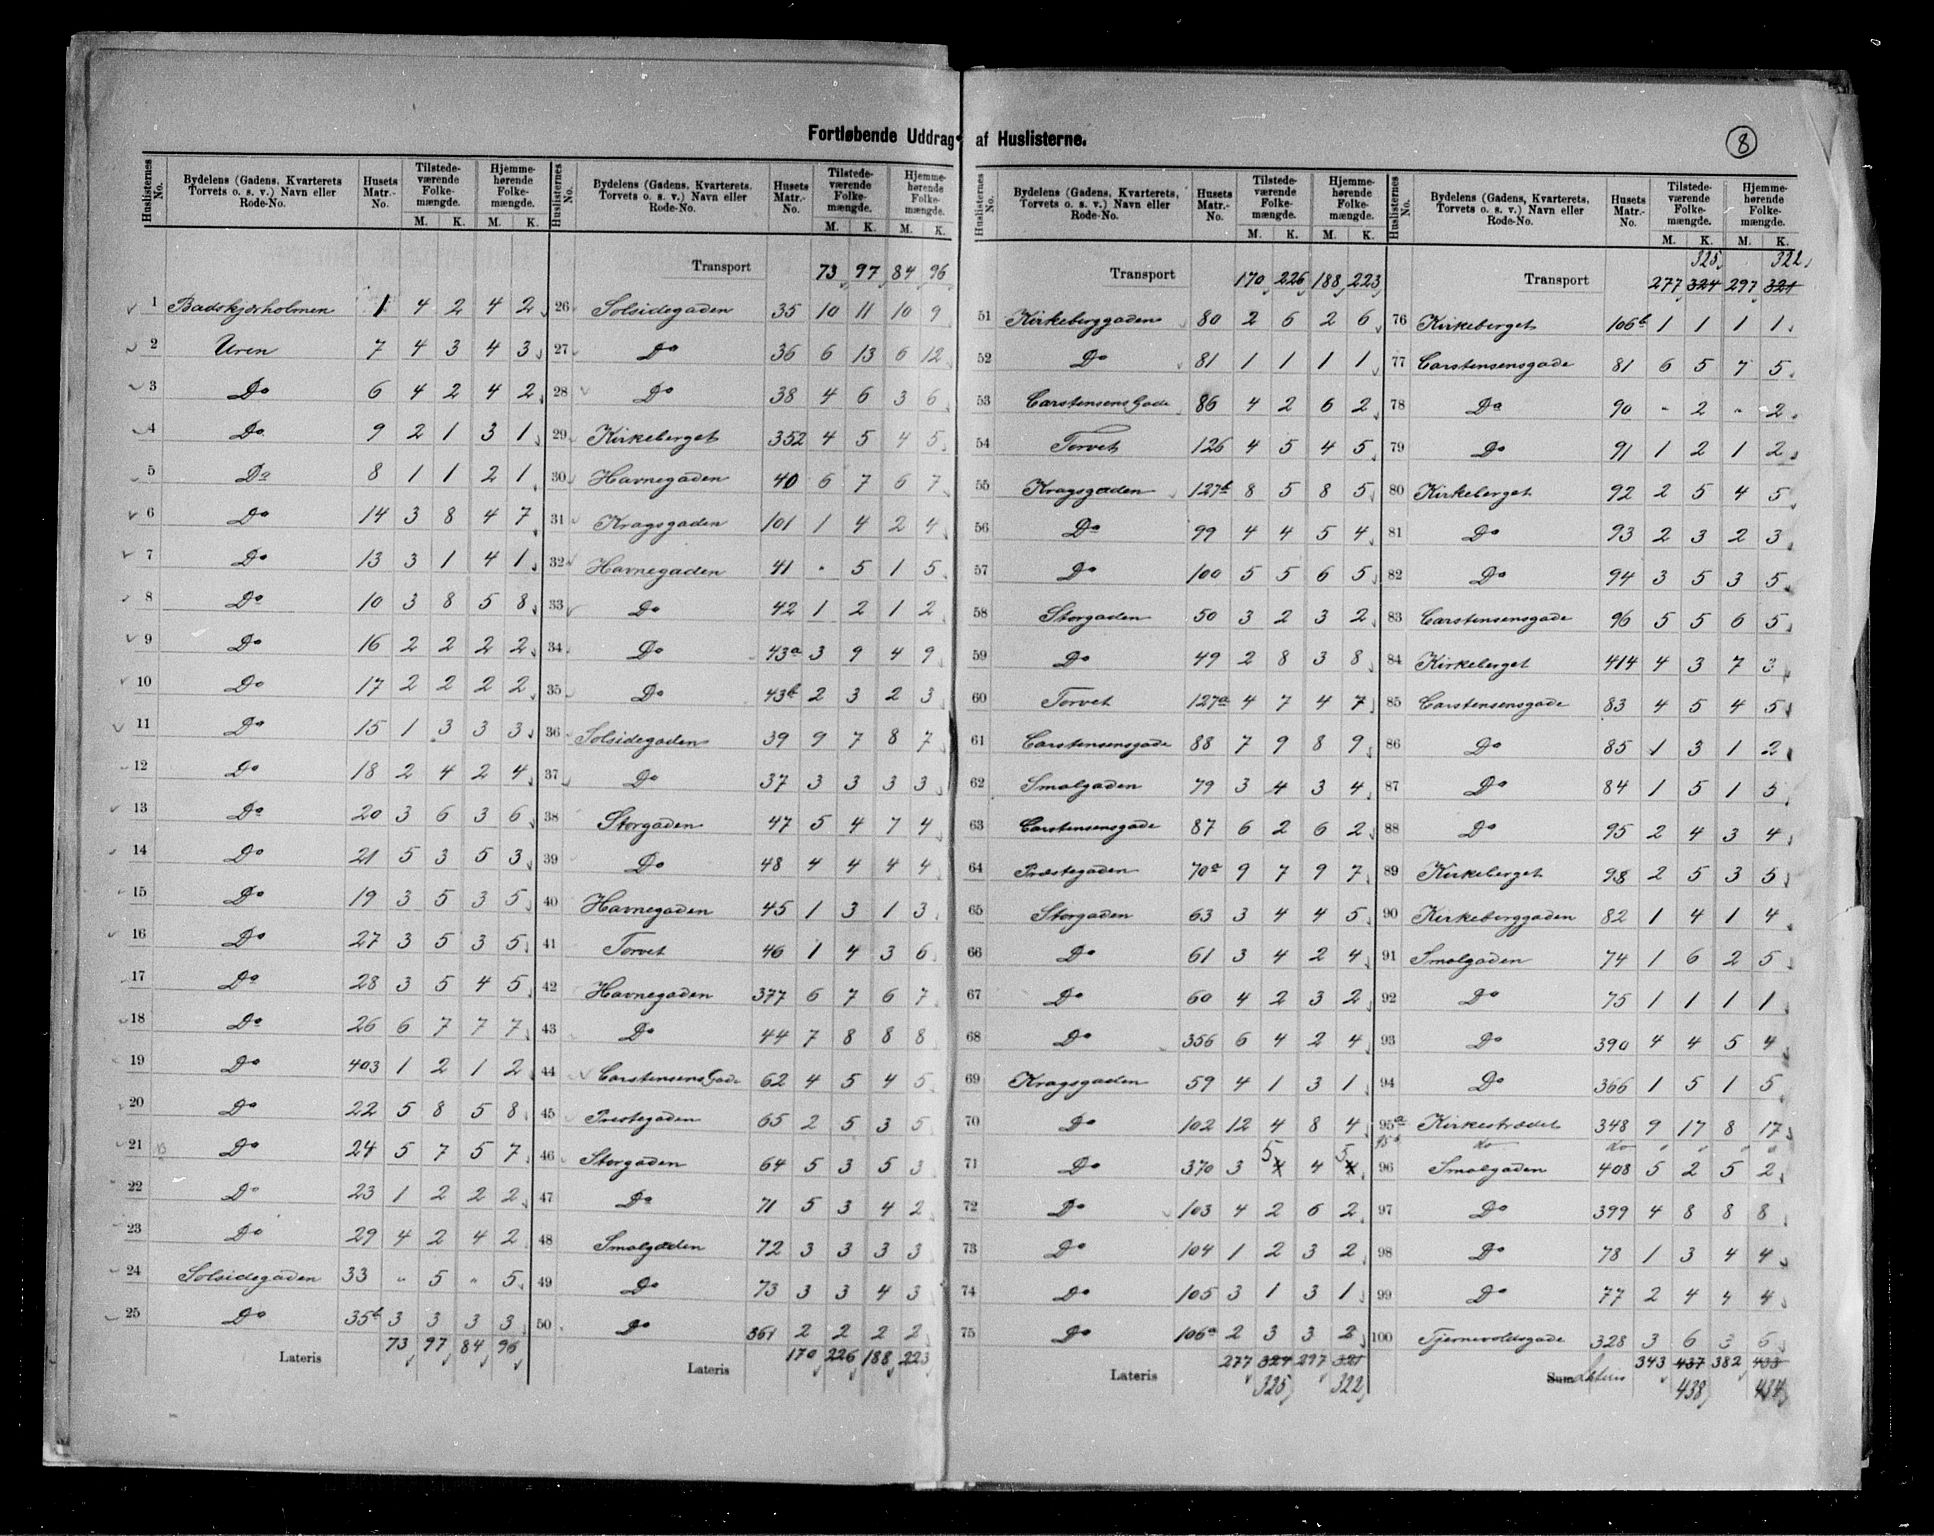 8
Fortløbende Uddrag af Huslisterne.
Huslisternes No. | Bydelens (Gadens, Kvarterets Torvets o. s. v.) Navn eller Rode-No. | Husets Matr.-No. | Tilstedeværende Folkemængde. M. K. | Hjemmehørende Folkemængde. M. K.
1 Badskjærholmen 1 4 2 4 2
2 Uren 7 4 3 4 3
3 Do 6 4 2 4 2
4 Do 9 2 1 3 1
5 Do 8 1 1 2 1
6 Do 14 3 8 4 7
7 Do 13 3 1 4 1
8 Do 10 3 8 5 8
9 Do 16 2 2 2 2
10 Do 17 2 2 2 2
11 Do 15 1 3 3 3
12 Do 18 2 4 2 4
13 Do 20 3 6 3 6
14 Do 21 5 3 5 3
15 Do 19 3 5 3 5
16 Do 27 3 5 3 5
17 Do 28 3 5 4 5
18 Do 26 6 7 7 7
19 Do 403 1 2 1 2
20 Do 22 5 8 5 8
21 Do 24 5 7 5 7
22 Do 23 1 2 2 2
23 Do 29 4 2 4 2
24 Solsidegaden 33 " 5 " 5
25 Do 35b 3 3 3 3
Lateris 73 97 84 96
Huslisternes No. | Bydelens (Gadens, Kvarterets, Torvets o. s. v.) Navn eller Rode-No. | Husets Matr.-No. | Tilstedeværende Folkemængde. M. K. | Hjemmehørende Folkemængde. M. K.
Transport 73 97 84 96
26 Solsidegaden 35 10 11 10 9
27 Do 36 6 13 6 12
28 Do 38 4 6 3 6
29 Kirkeberget 352 4 5 4 5
30 Havnegaden 40 6 7 6 7
31 Kragsgaden 101 1 4 2 4
32 Havnegaden 41 " 5 1 5
33 Do 42 1 2 1 2
34 Do 43a 3 9 4 9
35 Do 43b 2 3 2 3
36 Solsidegaden 39 9 7 8 7
37 Do 37 3 3 3 3
38 Storgaden 47 5 4 7 4
39 Do 48 4 4 4 4
40 Havnegaden 45 1 3 1 3
41 Torvet 46 1 4 3 6
42 Havnegaden 377 6 7 6 7
43 Do 44 7 8 8 8
44 Carstensens Gade 62 4 5 4 5
45 Prestegaden 65 2 5 3 5
46 Storgaden 64 5 3 5 3
47 Do 71 5 3 4 2
48 Smalgaden 72 3 3 3 3
49 Do 73 3 3 4 3
50 Do 361 2 2 2 2
Lateris 170 226 188 223
Huslisternes No. | Bydelens (Gadens, Kvarterets, Torvets o. s. v.) Navn eller Rode-No. | Husets Matr.-No. | Tilstedeværende Folkemængde. M. K. | Hjemmehørende Folkemængde. M. K.
Transport 170 226 188 223
51 Kirkeberggaden 80 2 6 2 6
52 Do 81 1 1 1 1
53 Carstensens Gade 86 4 2 6 2
54 Torvet 126 4 5 4 5
55 Kragsgaden 127b 8 5 8 5
56 Do 99 4 4 5 4
57 Do 100 5 5 6 5
58 Storgaden 50 3 2 3 2
59 Do 49 2 8 3 8
60 Torvet 127a 4 7 4 7
61 Carstensensgade 88 7 9 8 9
62 Smalgaden 79 3 4 3 4
63 Carstensensgade 87 6 2 6 2
64 Præstegaden 70a 9 7 9 7
65 Storgaden 63 3 4 4 5
66 Do 61 3 4 2 4
67 Do 60 4 2 3 2
68 Do 356 6 4 2 4
69 Kragsgaden 59 4 1 3 1
70 Do 102 12 4 8 4
71 Do 370 3 5 4 5
72 Do 103 4 2 6 2
73 Do 104 1 2 3 2
74 Do 105 3 1 3 1
75 Do 106a 2 3 3 2
Lateris 277 324 297 321
325 322
Huslisternes No. | Bydelens (Gadens, Kvarterets, Torvets o. s. v.) Navn eller Rode-No. | Husets Matr.-No. | Tilstedeværende Folkemængde. M. K. | Hjemmehørende Folkemængde. M. K.
325 322
Transport 277 324 297 321
76 Kirkeberget 106b 1 1 1 1
77 Carstensensgade 81 6 5 7 5
78 Do 90 " 2 " 2
79 Do 91 1 2 1 2
80 Kirkeberget 92 2 5 4 5
81 Do 93 2 3 2 3
82 Do 94 3 5 3 5
83 Carstensensgade 96 5 5 6 5
84 Kirkeberget 414 4 3 7 3
85 Carstensensgade 83 4 5 4 5
86 Do 85 1 3 1 2
87 Do 84 1 5 1 5
88 Do 95 2 4 3 4
89 Kirkeberget 98 2 5 3 5
90 Kirkeberggaden 82 1 4 1 4
91 Smalgaden 74 1 6 2 5
92 Do 75 1 1 1 1
93 Do 390 4 4 5 4
94 Do 366 1 5 1 5
95a Kirkestrædet 348 9 17 8 17
95b do do " " " "
96 Smalgaden 408 5 2 5 2
97 Do 399 4 8 8 8
98 Do 78 1 3 4 4
99 Do 77 2 4 4 4
100 Tjernevoldsgade 328 3 6 3 6
Sum Lateris 343 437 382 433
438 434